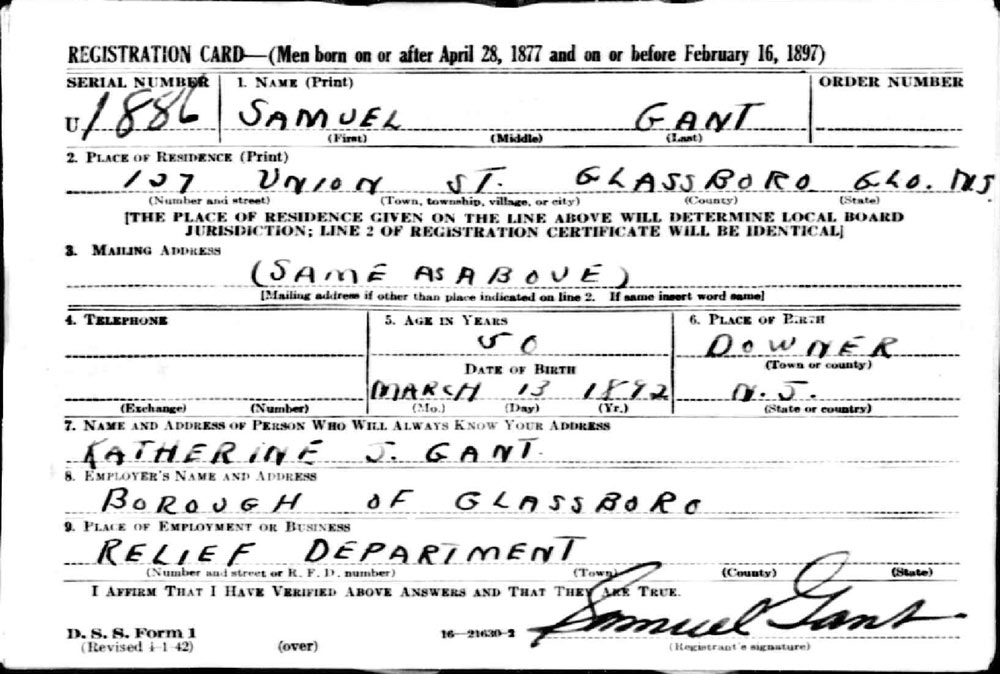 REGISTRATION CARD—(Men born on or after April 28, 1877 and on or before February 16, 1897)
SERIAL NUMBER 1. NAME (Print) ORDER NUMBER
U 1886 SAMUEL GANT
(First) (Middle) (Last)
2. PLACE OF RESIDENCE (Print)
137 UNION ST. GLASSBORO GLO. NJ
(Number and street) (Town, township, village, or city) (County) (State)
[THE PLACE OF RESIDENCE GIVEN ON THE LINE ABOVE WILL DETERMINE LOCAL BOARD
JURISDICTION; LINE 2 OF REGISTRATION CERTIFICATE WILL BE IDENTICAL]
3. MAILING ADDRESS
(SAME AS ABOVE)
[Mailing address if other than place indicated on line 2. If same insert word same]
4. TELEPHONE 5. AGE IN YEARS 6. PLACE OF BIRTH
50 DOWNER
DATE OF BIRTH (Town or county)
MARCH 13 1892 N.J.
(Exchange) (Number) (Mo.) (Day) (Yr.) (State or country)
7. NAME AND ADDRESS OF PERSON WHO WILL ALWAYS KNOW YOUR ADDRESS
KATHERINE J. GANT.
8. EMPLOYER'S NAME AND ADDRESS
BOROUGH OF GLASSBORO
9. PLACE OF EMPLOYMENT OR BUSINESS
RELIEF DEPARTMENT
(Number and street or R. F. D. number) (Town) (County) (State)
I AFFIRM THAT I HAVE VERIFIED ABOVE ANSWERS AND THAT THEY ARE TRUE.
Samuel Gant
D. S. S. Form 1 16—21630-2
(Revised 4-1-42) (over) (Registrant's signature)